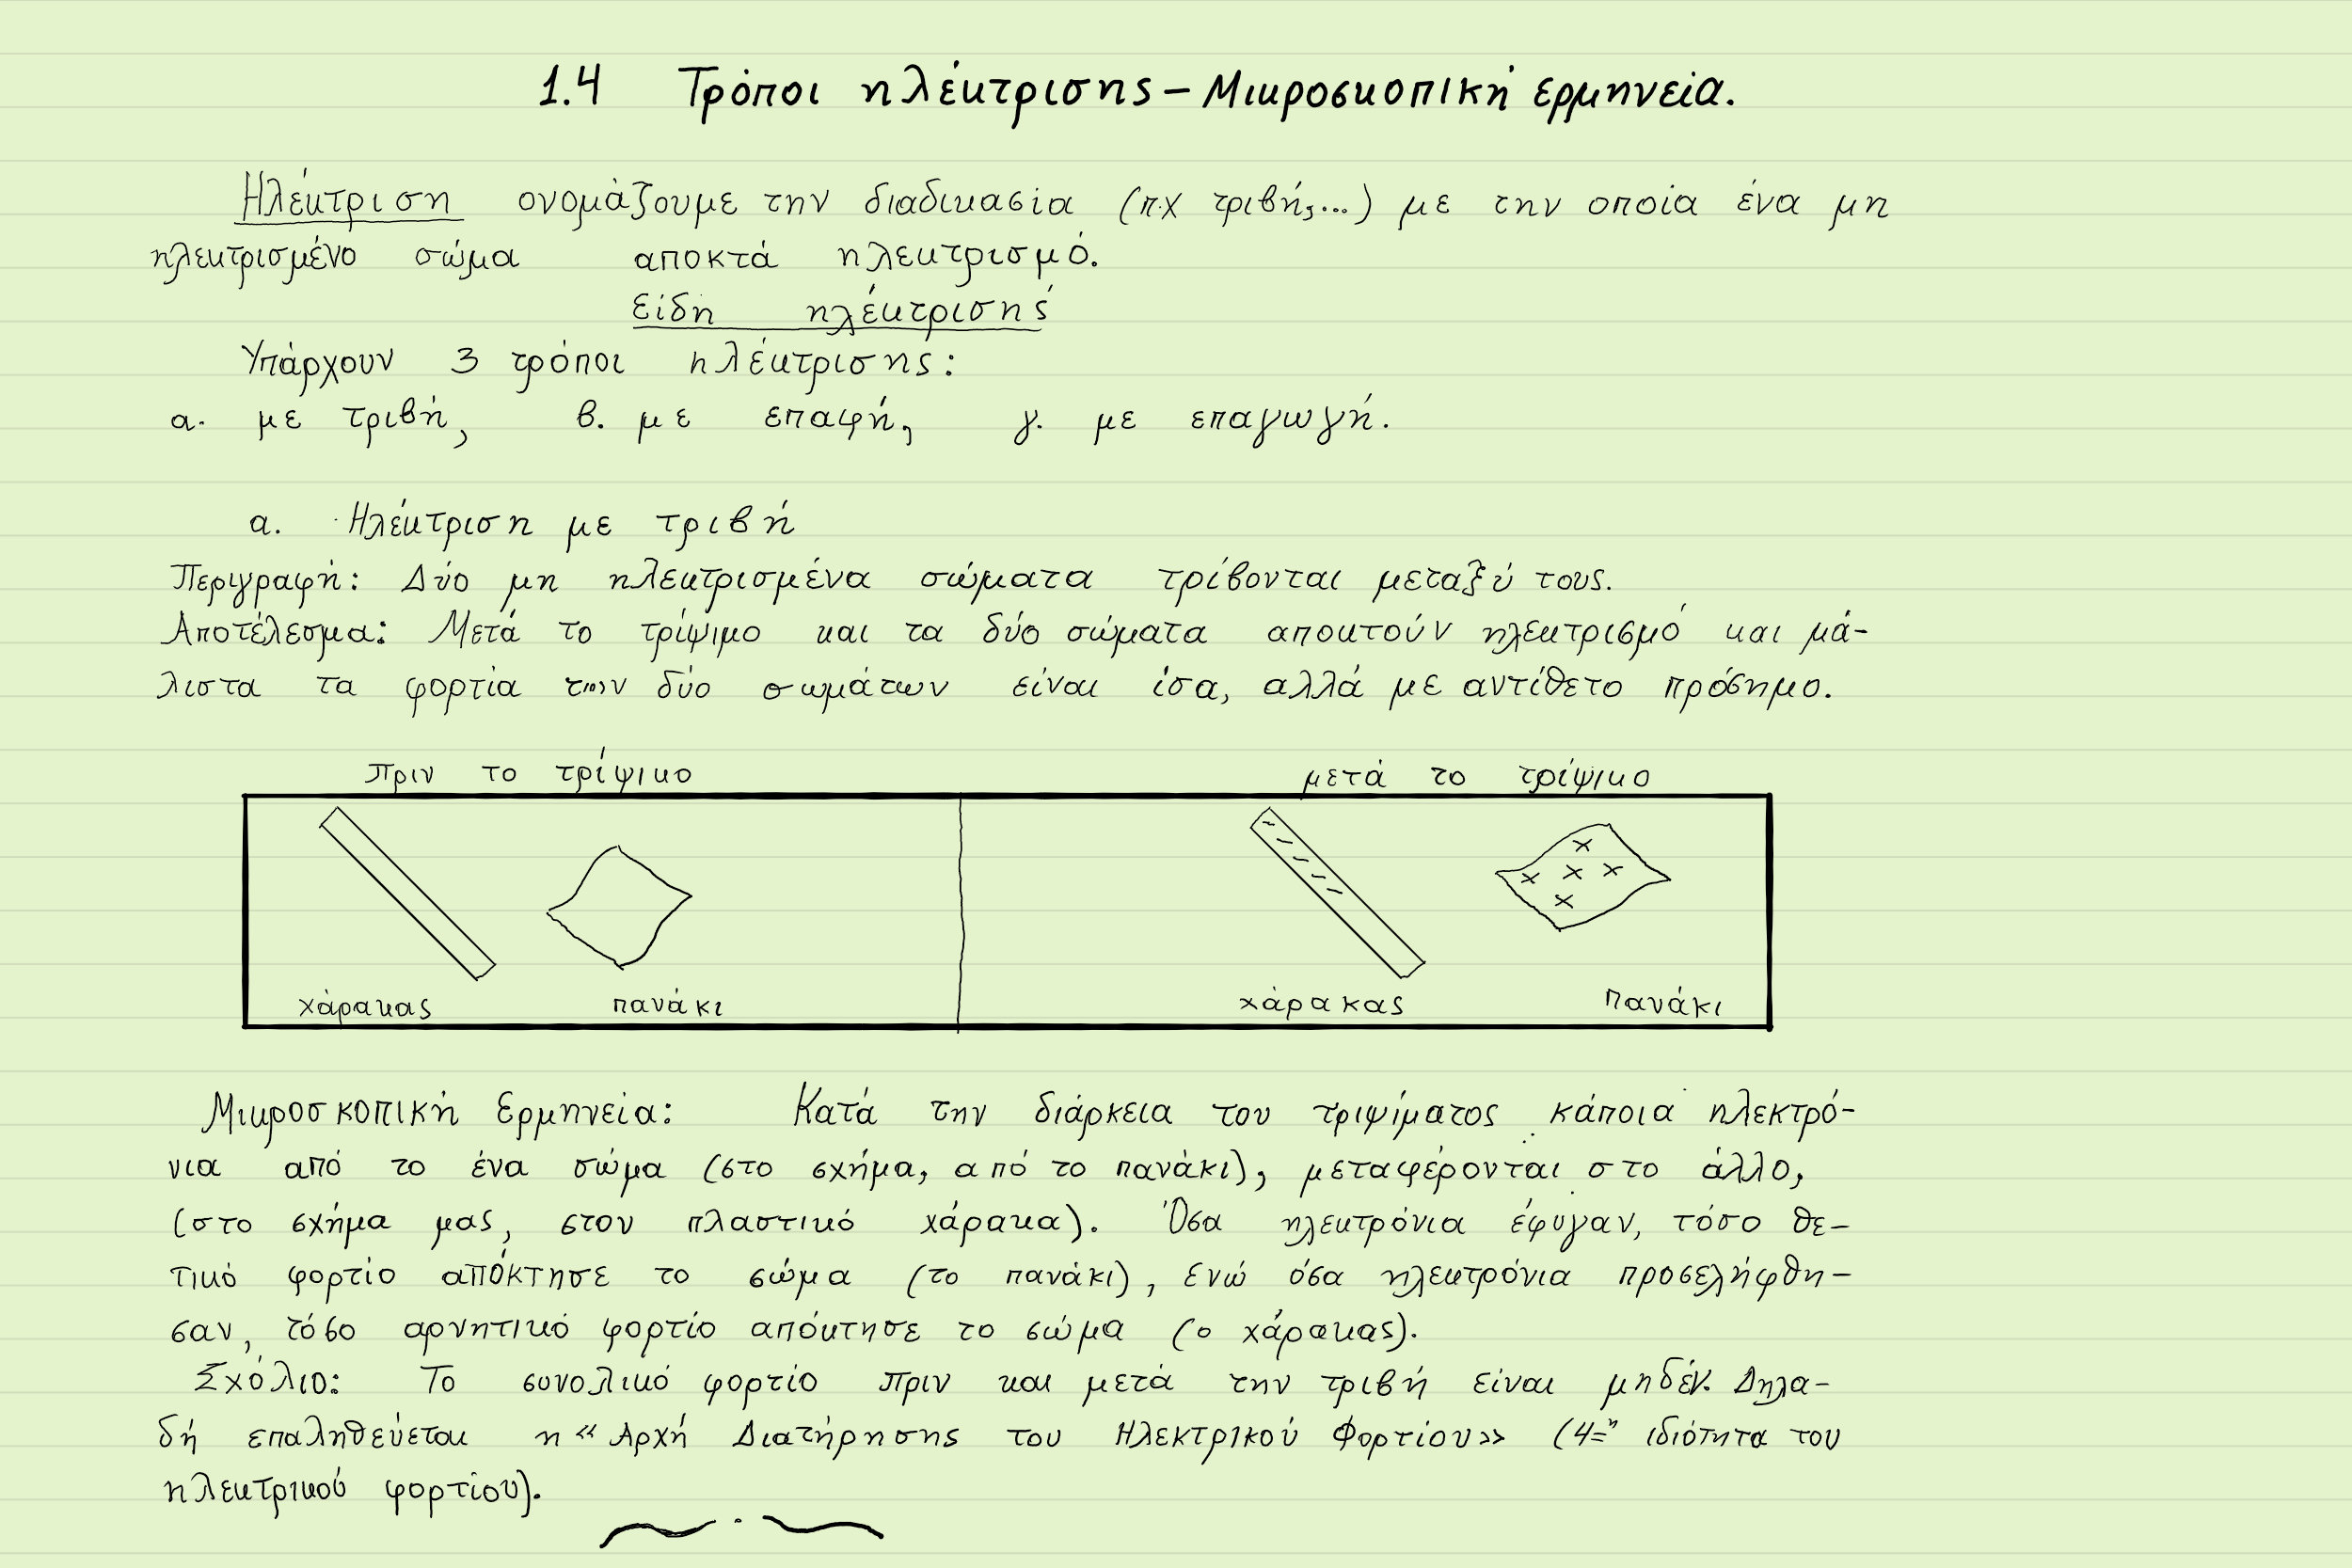 1.4 Τρόποι ηλέκτρισης – Μικροσκοπική ερμηνεία.
Ηλέκτριση ονομάζουμε την διαδικασία (π.χ τριβής...) με την οποία ένα μη
ηλεκτρισμένο σώμα αποκτά ηλεκτρισμό.
Είδη ηλέκτρισης
Υπάρχουν 3 τρόποι ηλέκτρισης:
α. με τριβή, β. με επαφή, γ. με επαγωγή.
α. Ηλέκτριση με τριβή
Περιγραφή: Δύο μη ηλεκτρισμένα σώματα τρίβονται μεταξύ τους.
Αποτέλεσμα: Μετά το τρίψιμο και τα δύο σώματα αποκτούν ηλεκτρισμό και μά-
λιστα τα φορτία των δύο σωμάτων είναι ίσα, αλλά με αντίθετο πρόσημο.
πριν το τρίψικο μετά το τρίψικο
χάρακας πανάκι χάρακας πανάκι
Μικροσκοπική Ερμηνεία: Κατά την διάρκεια του τριψίματος κάποια ηλεκτρό-
νια από το ένα σώμα (στο σχήμα, από το πανάκι), μεταφέρονται στο άλλο,
(στο σχήμα μας, στον πλαστικό χάρακα). Όσα ηλεκτρόνια έφυγαν, τόσο θε-
τικό φορτίο απόκτησε το σώμα (το πανάκι), ενώ όσα ηλεκτρόνια προσελήφθη-
σαν, τόσο αρνητικό φορτίο απόκτησε το σώμα (ο χάρακας).
Σχόλιο: Το συνολικό φορτίο πριν και μετά την τριβή είναι μηδέν. Δηλα-
δή επαληθεύεται η «Αρχή Διατήρησης του Ηλεκτρικού Φορτίου» (4=η ιδιότητα του
ηλεκτρικού φορτίου).